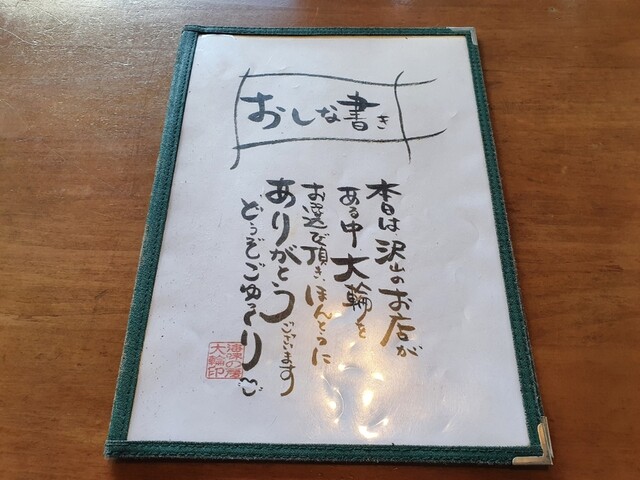 おしな書き
本日は沢山のお店が
ある中、大輪を
お選び頂き、ほんとうに
ありがとうございます
どうぞごゆっくり
大輪印